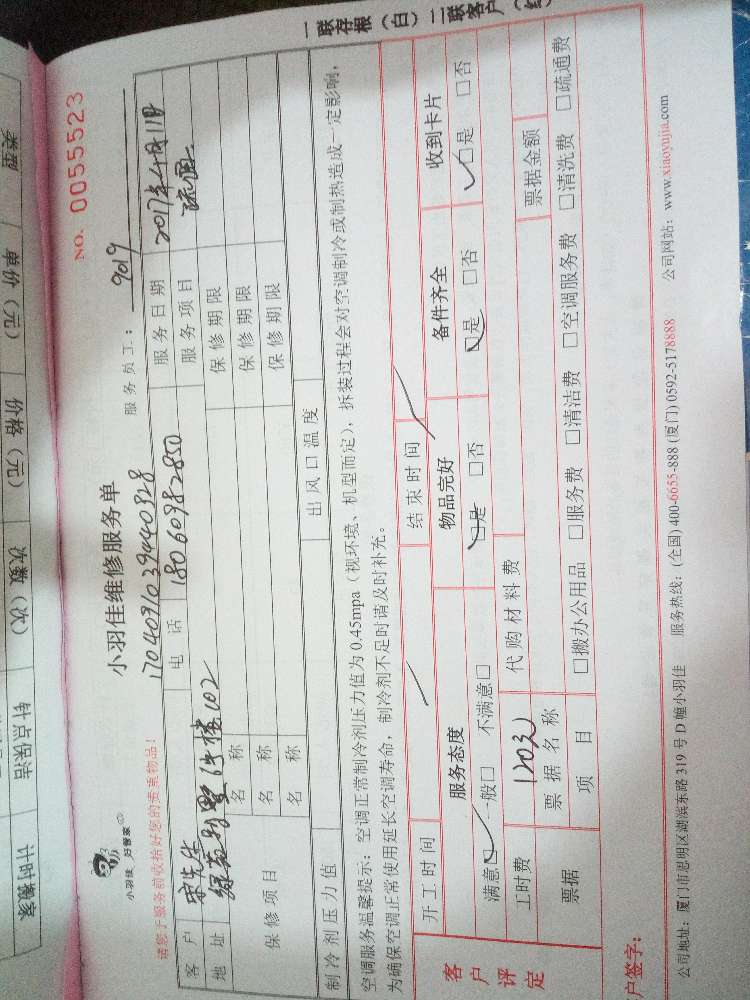 一联存根（白）二联客户（红
NO. 0055523
小羽佳 归管家
小羽佳维修服务单
服务员工： 9019
请您于服务前收拾好您的贵重物品！
17040710394440828
客户 宋先生 电话 18060982850 服务日期 2017年4月11日
地址 102 服务项目
保修项目
名称 保修期限
名称 保修期限
名称 保修期限
制冷剂压力值 出风口温度
空调服务温馨提示：空调正常制冷剂压力值为0.45mpa（视环境、机型而定），拆装过程会对空调制冷或制热造成一定影响，
为确保空调正常使用延长空调寿命，制冷剂不足时请及时补充。
客户评定
开工时间 结束时间
服务态度 物品完好 备件齐全 收到卡片
满意□ 一般□ 不满意□ □是 □否 □是 □否 □是 □否
工时费 120元 代购材料费
票据 票据名称 票据金额
项目 □搬办公用品 □服务费 □清洁费 □空调服务费 □清洗费 □疏通费
户签字：
公司地址：厦门市思明区湖滨东路319号D幢小羽佳 服务热线：(全国)400-6655-888 (厦门) 0592-5178888 公司网站：www.xiaoyujia.com
类型 单价（元） 价格（元） 次数（次） 钟点保洁 计时搬家